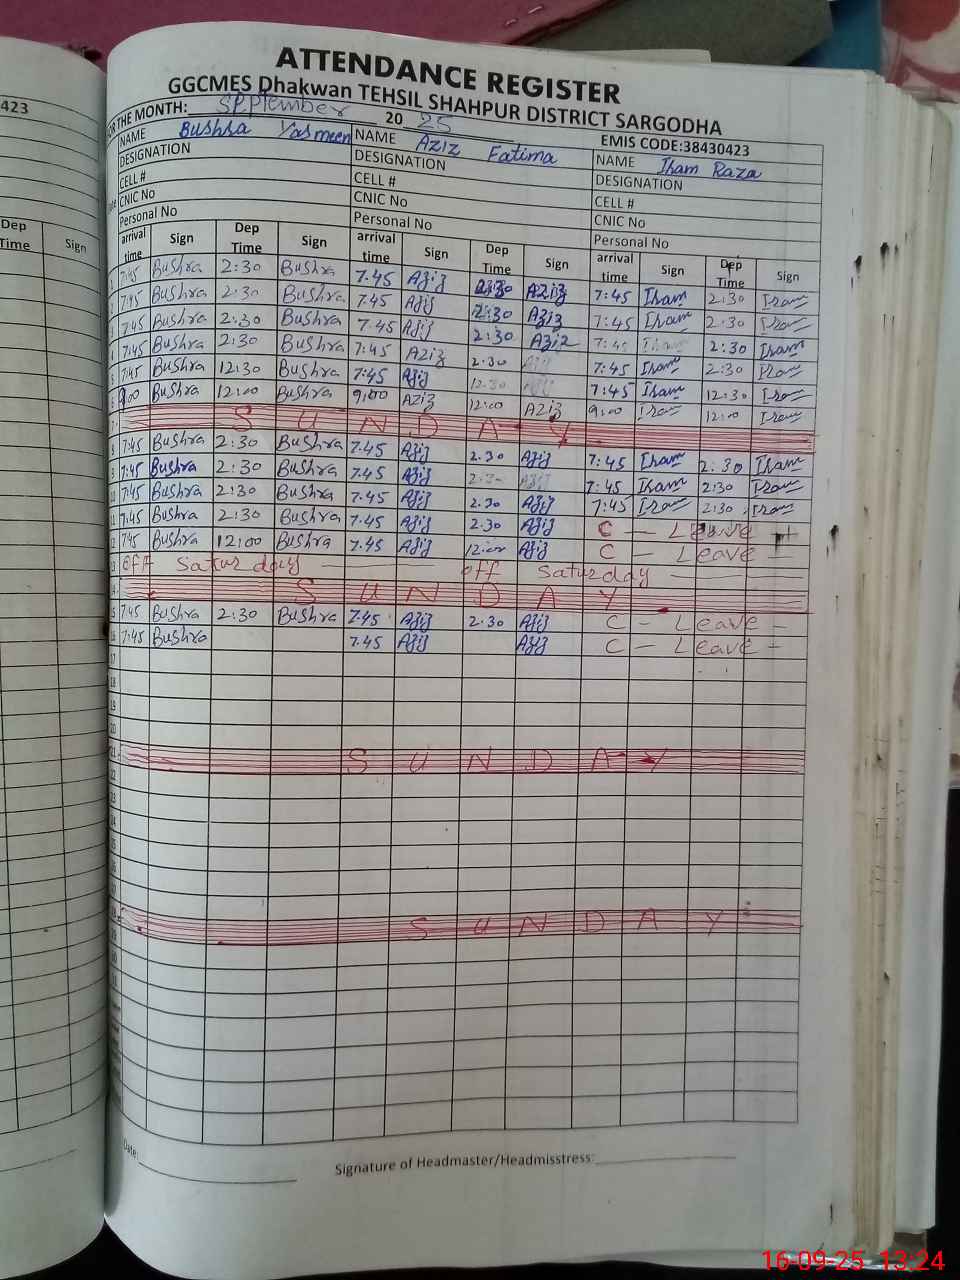 423
Dep
Time
Sign
ATTENDANCE REGISTER
GGCMES Dhakwan TEHSIL SHAHPUR DISTRICT SARGODHA
FOR THE MONTH: September 2025
EMIS CODE:38430423
NAME Bushra Yasmeen NAME Aziz Fatima NAME Iram Raza
DESIGNATION DESIGNATION DESIGNATION
CELL # CELL # CELL #
CNIC No CNIC No CNIC No
Personal No Personal No Personal No
arrival time Sign Dep Time Sign arrival time Sign Dep Time Sign arrival time Sign Dep Time Sign
1 7:45 Bushra 2:30 Bushra 7.45 Aziz 2:30 Aziz 7:45 Iram 2:30 Iram
2 7:45 Bushra 2:30 Bushra 7.45 Aziz 2:30 Aziz 7:45 Iram 2:30 Iram
3 7:45 Bushra 2:30 Bushra 7.45 Aziz 2:30 Aziz 7:45 Iram 2:30 Iram
4 7:45 Bushra 2:30 Bushra 7:45 Aziz 2:30 7:45 Iram 2:30 Iram
5 7:45 Bushra 12:30 Bushra 7:45 Aziz 12:30 7:45 Iram 12:30 Iram
6 9:00 Bushra 12:00 Bushra 9:00 Aziz 12:00 Aziz 9:00 Iram 12:00 Iram
7 SUNDAY
8 7:45 Bushra 2:30 Bushra 7.45 Aziz 2.30 Aziz 7:45 Iram 2:30 Iram
9 7:45 Bushra 2:30 Bushra 7.45 Aziz 2:30 Aziz 7:45 Iram 2:30 Iram
10 7:45 Bushra 2:30 Bushra 7.45 Aziz 2.30 Aziz 7:45 Iram 2:30 Iram
11 7:45 Bushra 2:30 Bushra 7.45 Aziz 2.30 Aziz C - Leave
12 7:45 Bushra 12:00 Bushra 7.45 Aziz 12:00 Aziz C - Leave -
13 off Saturday off Saturday
14 SUNDAY
15 7:45 Bushra 2:30 Bushra 7.45 Aziz 2.30 Aziz C - Leave -
16 7:45 Bushra 7.45 Aziz Aziz C - Leave -
17
18
19
20
21 SUNDAY
22
23
24
25
26
27
28 SUNDAY
29
30
31
Date:
Signature of Headmaster/Headmisstress:
16-09-25 13:24